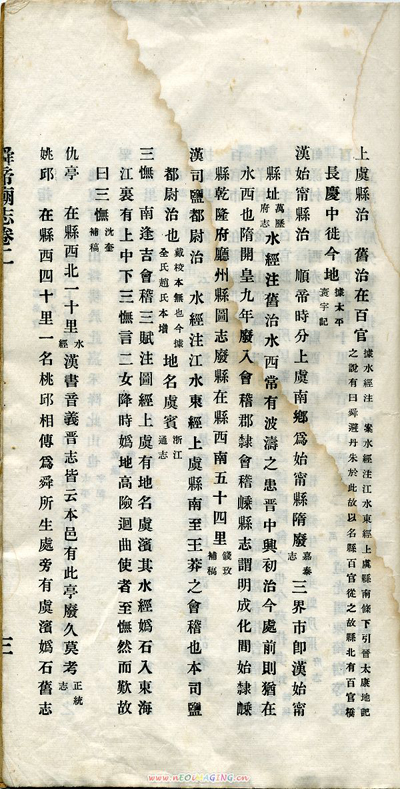 上虞縣治　舊治在百官據水經注　案水經注江水東經上虞縣南條下引晉太康地記之說有曰舜避丹朱於此故以名縣百官從之故縣北有百官橋
長慶中徙今地據太平寰宇記
漢始甯縣治　順帝時分上虞南鄉為始甯縣隋廢嘉泰志三界市即漢始甯
縣址萬歷府志水經注舊治水西常有波濤之患晉中興初治今處前則猶在
水西也隋開皇九年廢入會稽郡隸會稽嵊縣志謂明成化間始隸嵊
縣乾隆府廳州縣圖志廢縣在縣西南五十四里錢玫補稿
漢司鹽都尉治　水經注江水東經上虞縣南至王莽之會稽也本司鹽
都尉治也戴校本無也今據全氏趙氏本增地名虞賓浙江通志
三憮　南逢吉會稽三賦注圖經上虞有地名虞濱其水經嬀石入東海
江裏有上中下三憮言二女降時嬀地高險迴曲使者至憮然而歎故
曰三憮沈奎補稿
仇亭　在縣西北一十里水經漢書音義晉志皆云本邑有此亭廢久莫考正統志
姚邱　在縣西四十里一名桃邱相傳為舜所生處旁有虞濱嬀石舊志
舜帝廟志卷二
三
www.neOImAGING.cn